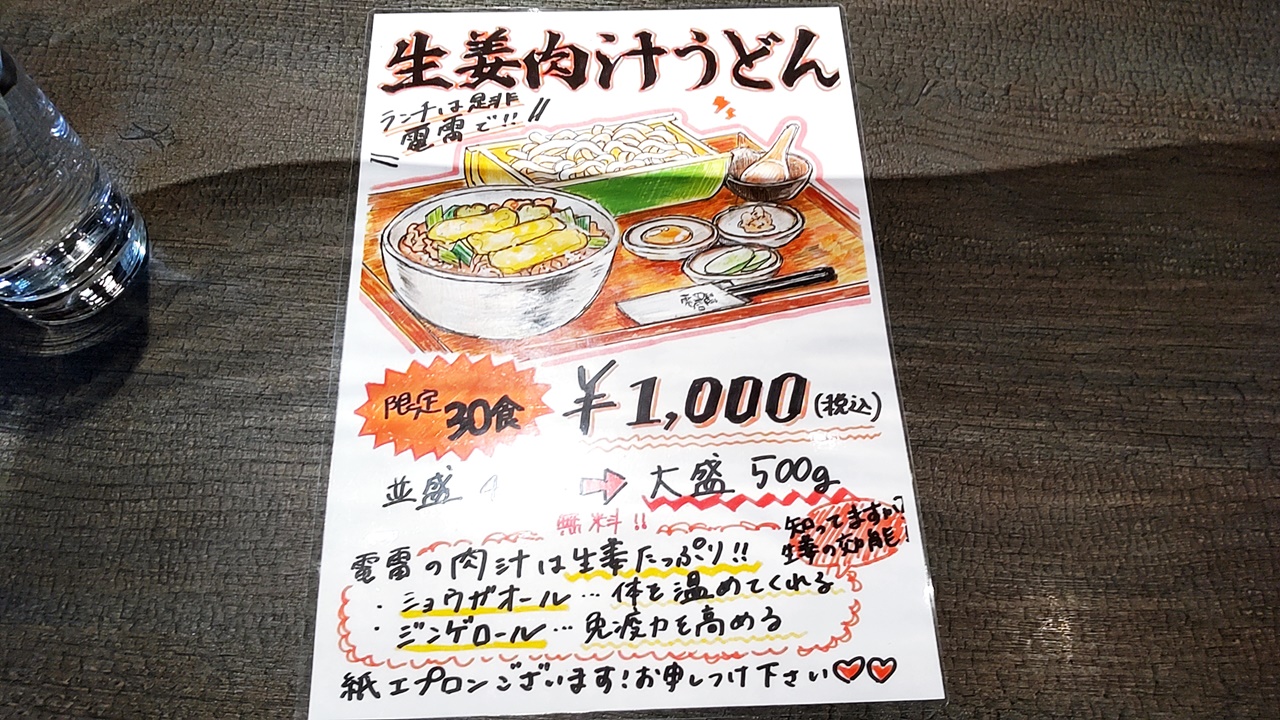 生姜肉汁うどん
ランチは是非
電雷で!!
限定30食
¥1,000(税込)
並盛
➡大盛 500g
無料!!
知ってますか?
生姜の効能!
電雷の肉汁は生姜たっぷり!!
・ショウガオール…体を温めてくれる
・ジンゲロール…免疫力を高める
紙エプロンございます!お申しつけ下さい♥♥